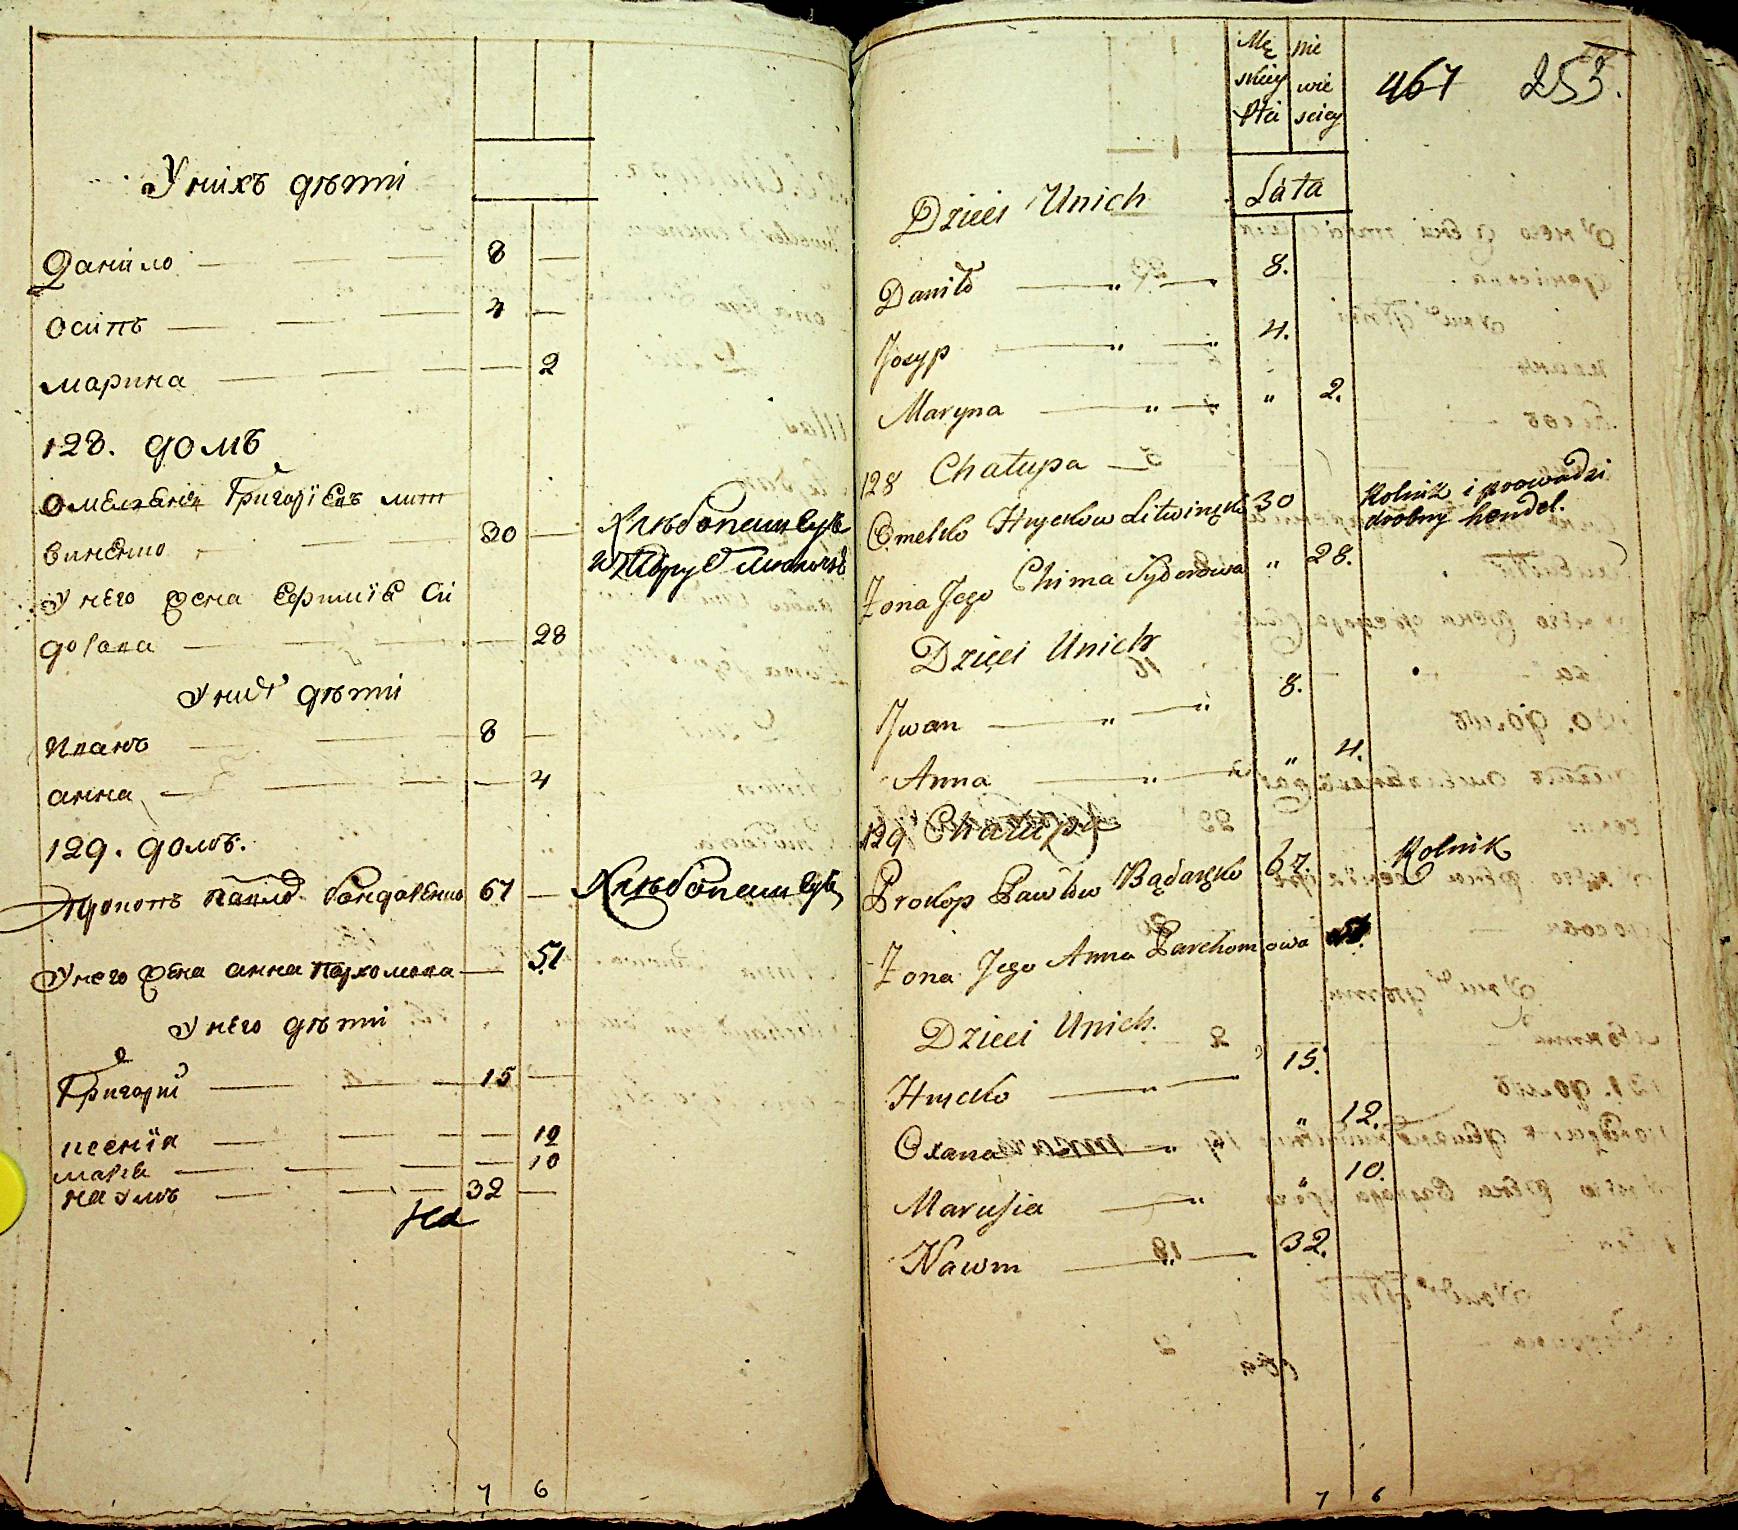 Унихъ дѣти
Данило — — — 8 —
Осипъ — — — 4 —
марина — — — — 2
128. домъ
Омелянъ Григорїевъ лит
виненко — 30 — Хлѣбопашецъ
У него жена Евфимїе Си
дорова — — — — 28
У них дѣти
Иванъ — — 8 —
анна — — — — 4
129. домъ.
Прокопъ Павлов бондаренко 67 — Хлѣбопашецъ
У него жена анна пархомова — 51
У него дѣти
Григорий — — — 15 —
ксенїя — — — — 12
марїя — — — — 10
наумъ — — — 32 —
На
7 6
Mę skiey Płci
nie wie sciey
467 253.
Łata
Dzieci Unich
Daniło — „ — 8.
Josyp — „ — „ 4.
Maryna — „ — „ 2.
128 Chałupa —
Omelko Hryckow Litwinęko 30 Rolnik i prowadzi
drobny hendel.
Zona Jego Chima Sydorowa „ 28.
Dzieci Unich
Jwan — „ — „ 8.
Anna — „ — „ 4.
129 Chałupa
Prokop Pawłow Bądaręko 67. Rolnik
Zona Jego Anna Parchomowa
Dzieci Unich.
Hrycko — „ — 15.
Oxana „ „ 12.
Marusia — „ „ 10.
Nawm — „ — 32.
7 6